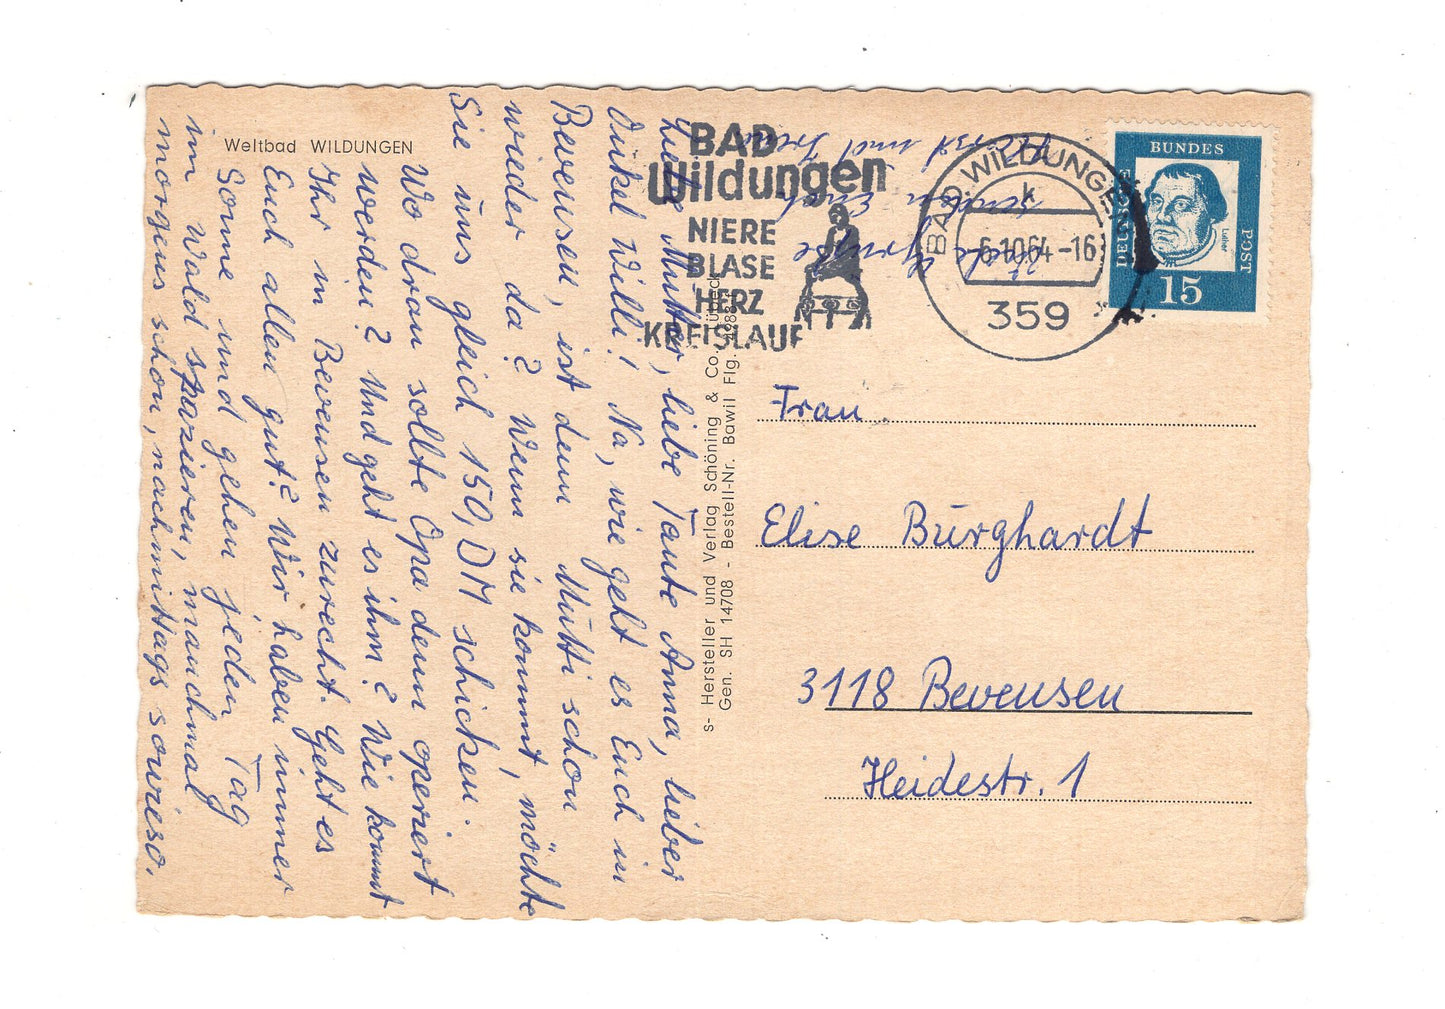 Weltbad WILDUNGEN
Liebe Mutter, liebe Tante Anna, lieber
Onkel Willi! Na, wie geht es Euch in
Bevensen, ist denn Mutti schon
wieder da? Wenn sie kommt, möchte
Sie uns gleich 150,DM schicken.
Wo dran sollte Opa denn operiert
werden? Und geht es ihm? Wie kommt
Ihr in Bevensen zurecht. Geht es
Euch allen gut? Wir haben immer
Sonne und gehen jeden Tag
im Wald spazieren, manchmal
morgens schon, nachmittags sowieso.
Grüße
senden Euch
Horst und
s- Hersteller und Verlag Schöning & Co., Lübeck
Gen. SH 14708 - Bestell-Nr. Bawil Flg.
BAD
Wildungen
NIERE
BLASE
HERZ
KREISLAUF
BAD WILDUNGEN
k
-6.10.64-16
359
DEUTSCHE
BUNDES
POST
Luther
15
Frau
Elise Burghardt
3118 Bevensen
Heidestr. 1